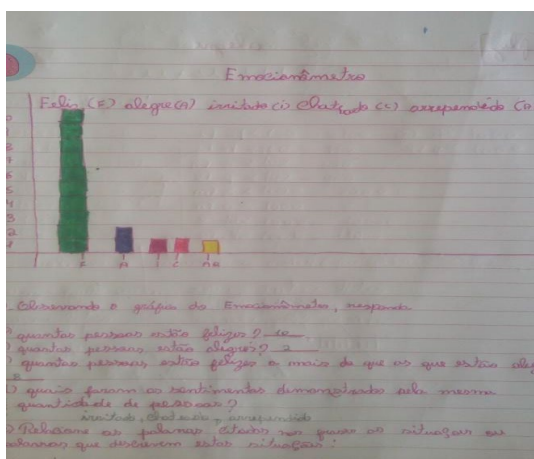 Emocionômetro
Feliz (F) alegre (A) irritado (i) Chateado (C) arrependido (A
8
7
6
5
4
3
2
1
F A I C AR
Observando o gráfico do Emocionômetro, responda
quantas pessoas estão felizes? 10
quantas pessoas estão alegres? 2
quantas pessoas estão felizes a mais do que os que estão ale
8
quais foram os sentimentos demonstrado pela mesma
quantidade de pessoas?
irritado, chateado, arrependido
Relacione as palavras citadas nos as situações ou
palavras que descrevem estas situações: